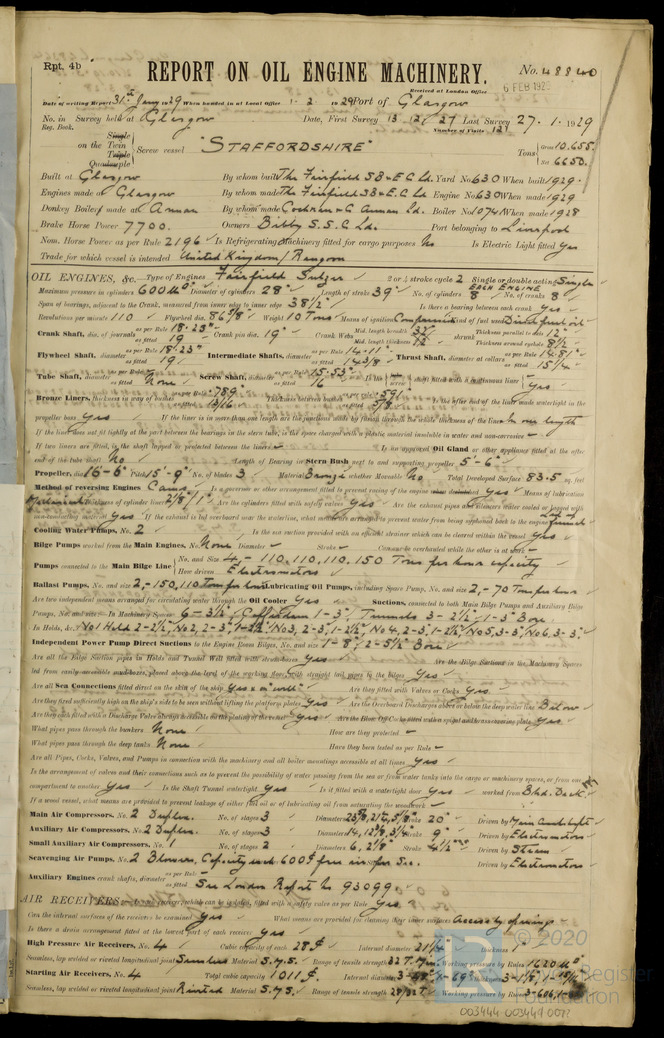 Rpt. 4b
REPORT ON OIL ENGINE MACHINERY.
No. 48840
Received at London Office
6 FEB 1929
Date of writing Report 31st Jany 1929 When handed in at Local Office 1. 2 1929 Port of Glasgow
No. in Survey held at Glasgow Date, First Survey 13. 12. 27 Last Survey 27. 1. 1929
Reg. Book. Number of Visits 127
on the Single Twin Triple Quadruple Screw vessel "STAFFORDSHIRE" Tons Gross 10.655. Net 6650.
Built at Glasgow By whom built The Fairfield SB & E. C. Ld. Yard No 630 When built 1929.
Engines made at Glasgow By whom made The Fairfield SB & E. C Ld. Engine No 630 When made 1929
Donkey Boilers made at Annan By whom made Cochran & C Annan Ld. Boiler No 10741 When made 1928
Brake Horse Power 7700. Owners Bibby S. S. C. Ld. Port belonging to Liverpool
Nom. Horse Power as per Rule 2196 Is Refrigerating Machinery fitted for cargo purposes No Is Electric Light fitted Yes
Trade for which vessel is intended United Kingdom / Rangoon
OIL ENGINES, &c. Type of Engines Fairfield Sulzer 2 or 4 stroke cycle 2 Single or double acting Single
Maximum pressure in cylinders 600 Diameter of cylinders 28" Length of stroke 39" No. of cylinders 8 EACH ENGINE No. of cranks 8
Span of bearings, adjacent to the Crank, measured from inner edge to inner edge 38½" Is there a bearing between each crank Yes
Revolutions per minute 110 Flywheel dia. 86⅝" Weight 10 Tons Means of ignition Compression Kind of fuel used
Crank Shaft, dia. of journals as per Rule 18.23" as fitted 19 Crank pin dia. 19" Crank Webs Mid. length breadth 32" Mid. length thickness 12" shrunk Thickness parallel to axis 12" Thickness around eyehole 8½"
Flywheel Shaft, diameter as per Rule 18.23" as fitted 19 Intermediate Shafts, diameter as per Rule 14.11" as fitted 14⅜" Thrust Shaft, diameter at collars as per Rule 14.81" as fitted 15¼"
Tube Shaft, diameter as per Rule as fitted None Screw Shaft, diameter as per Rule 15.53" as fitted 16 Is the screw shaft fitted with a continuous liner Yes
Bronze Liners, thickness in way of bushes as per Rule .789" as fitted 13/16 Thickness between bushes as per rule .591 as fitted 5/8 Is the after end of the liner made watertight in the
propeller boss Yes If the liner is in more than one length are the junctions made by fusion through the whole thickness of the liner In one length
If the liner does not fit tightly at the part between the bearings in the stern tube, is the space charged with a plastic material insoluble in water and non-corrosive -
If two liners are fitted, is the shaft lapped or protected between the liners - Is an approved Oil Gland or other appliance fitted at the after
end of the tube shaft No Length of Bearing in Stern Bush next to and supporting propeller 5'-6"
Propeller, dia 16'-6" Pitch 15'-9" No. of blades 3 Material Bronze whether Moveable No Total Developed Surface 83.5 sq. feet
Method of reversing Engines Cams Is a governor or other arrangement fitted to prevent racing of the engine Yes Means of lubrication
Mechanical Thickness of cylinder liners Are the cylinders fitted with safety valves Yes Are the exhaust pipes and silencers water cooled or lagged with
non-conducting material Yes If the exhaust is led overboard near the waterline, what means are arranged to prevent water from being syphoned back to the engine
Cooling Water Pumps, No. 2 Is the sea suction provided with an efficient strainer which can be cleared within the vessel Yes
Bilge Pumps worked from the Main Engines, No. None Diameter - Stroke - Can one be overhauled while the other is at work -
Pumps connected to the Main Bilge Line No. and Size 4, - 110, 110, 110, 150 Tons per hour capacity How driven Electromotors
Ballast Pumps, No. and size 2, - 150, 110 Tons per hour Lubricating Oil Pumps, including Spare Pump, No. and size 2, - 70 Tons per hour
Are two independent means arranged for circulating water through the Oil Cooler Yes Suctions, connected to both Main Bilge Pumps and Auxiliary Bilge
Pumps, No. and size:- In Machinery Spaces 6 - 3½", Cofferdam 1 - 3", Tunnels 3 - 2½", 1 - 3" Bore
In Holds, &c. No1 Hold 2 - 2½", No2, 2 - 3", 1 - 2½", No3, 2 - 3", 1 - 2½", No4, 2 - 3", 1 - 2½", No5, 3 - 3", No6, 3 - 3"
Independent Power Pump Direct Suctions to the Engine Room Bilges, No. and size 1 - 8", 2 - 5½" Bore
Are all the Bilge Suction pipes in Holds and Tunnel Well fitted with strum-boxes Yes Are the Bilge Suctions in the Machinery Spaces
led from easily accessible mud-boxes, placed above the level of the working floor, with straight tail pipes to the bilges Yes
Are all Sea Connections fitted direct on the skin of the ship Yes Are they fitted with Valves or Cocks Yes
Are they fixed sufficiently high on the ship's side to be seen without lifting the platform plates Yes Are the Overboard Discharges above or below the deep water line Below
Are they each fitted with a Discharge Valve always accessible on the plating of the vessel Yes Are the Blow Off Cocks fitted with a spigot and brass covering plate Yes
What pipes pass through the bunkers None How are they protected -
What pipes pass through the deep tanks None Have they been tested as per Rule -
Are all Pipes, Cocks, Valves, and Pumps in connection with the machinery and all boiler mountings accessible at all times Yes
Is the arrangement of valves and their connections such as to prevent the possibility of water passing from the sea or from water tanks into the cargo or machinery spaces, or from one
compartment to another Yes Is the Shaft Tunnel watertight Yes Is it fitted with a watertight door Yes worked from Bhd. Deck.
If a wood vessel, what means are provided to prevent leakage of either fuel oil or of lubricating oil from saturating the woodwork -
Main Air Compressors, No. 2 Duplex. No. of stages 3 Stroke 20" Driven by Main Crankshaft
Auxiliary Air Compressors, No. 2 Duplex No. of stages 3 Stroke 9" Driven by Electromotors
Small Auxiliary Air Compressors, No. 1 No. of stages 2 Diameters 6, 2⅛" Driven by Steam
Scavenging Air Pumps, No. 2 Blowers, Capacity each 600 free air per Sec. Driven by Electromotors
Auxiliary Engines crank shafts, diameter as per Rule as fitted See London Report No 93099
AIR RECEIVERS:- Can each receiver be isolated, fitted with a safety valve as per Rule Yes
Can the internal surfaces of the receivers be examined Yes What means are provided for cleaning their inner surfaces Access by openings
Is there a drain arrangement fitted at the lowest part of each receiver Yes
High Pressure Air Receivers, No. 4 Cubic capacity of each 28 Internal diameter 21¼ thickness 1"
Seamless, lap welded or riveted longitudinal joint Seamless Material S.M.S. Range of tensile strength 32 T. Min. Working pressure by Rules 1620
Starting Air Receivers, No. 4 Total cubic capacity 1011 Internal diameter
Seamless, lap welded or riveted longitudinal joint Riveted Material S.M.S. Range of tensile strength 28/32 T. Working pressure by Rules
© 2020
Lloyd's Register
Foundation
003444-003449-0072